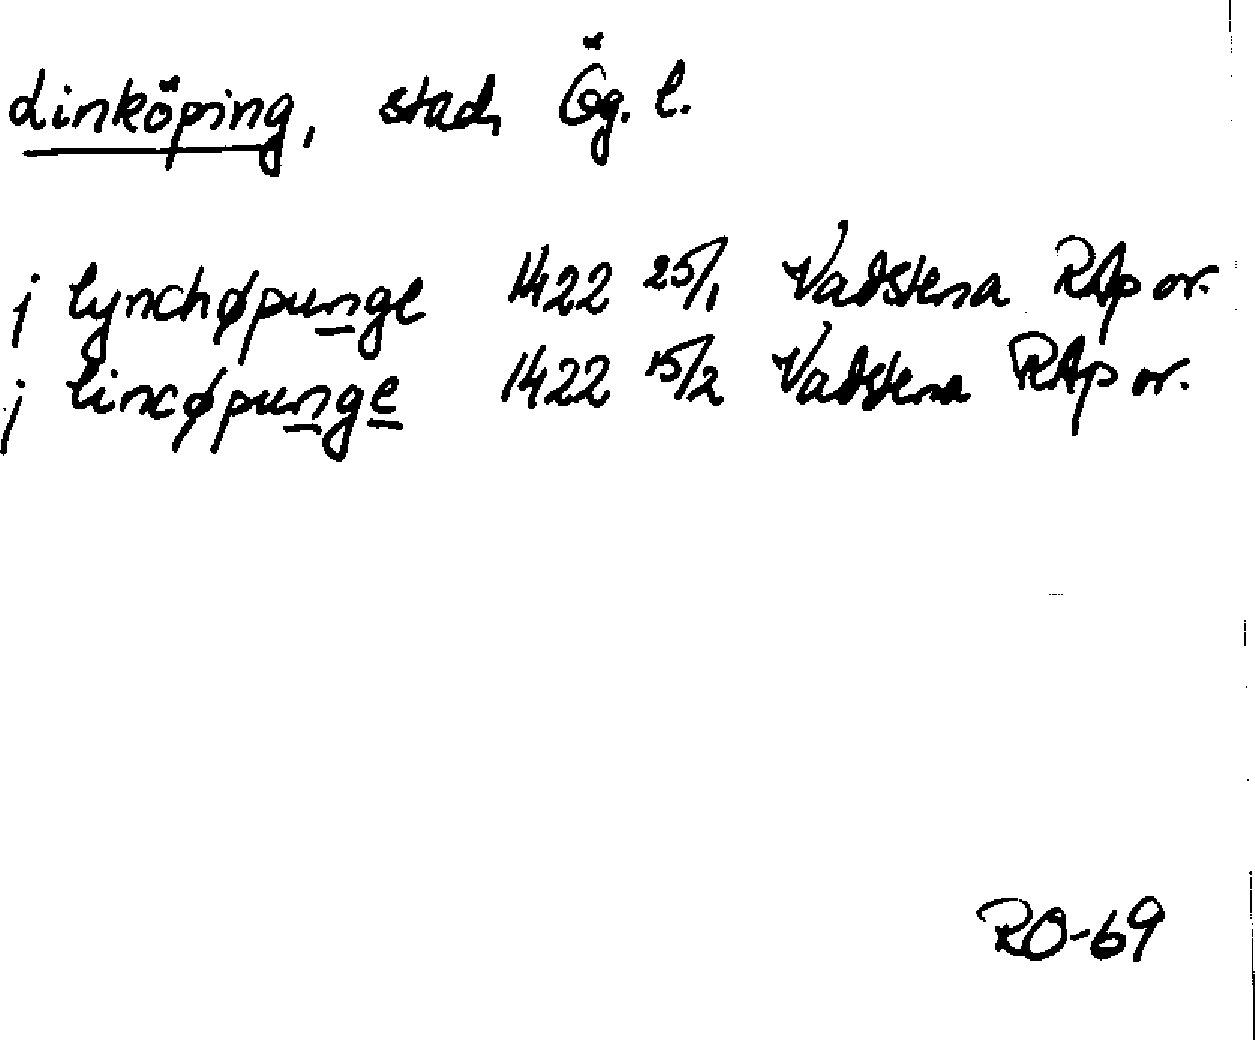 Linköping, stad, Ög. l.
j lynchøpunge 1422 25/1 Vadstena RAp or.
j lincøpunge 1422 15/2 Vadstena RAp or.
RO-69